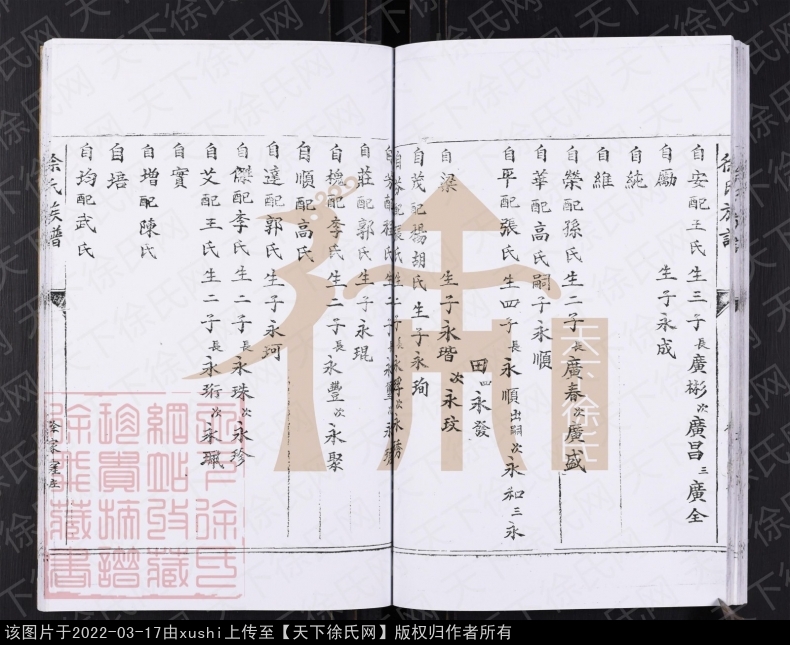 徐氏族譜
自安配王氏生三子長廣彬次廣昌三廣全
自勵 生子永成
自純
自維
自榮配孫氏生二子長廣春次廣盛
自華配高氏嗣子永順
自平配張氏生四子長永順出嗣次永和三永
田四永發
自梁 生子永瑎次永玟
自茂配楊胡氏生子永珣
自莊配郭氏生子永琨
自槐配李氏生二子長永豐次永聚
自順配高氏
自達配郭氏生子永珂
自傑配李氏生二子長永珠次永珍
自艾配王氏生二子長永珩次永珮
自實
自增配陳氏
自培
自均配武氏
徐氏族譜
天下徐氏
天下徐氏网
该图片于2022-03-17由xushi上传至【天下徐氏网】版权归作者所有